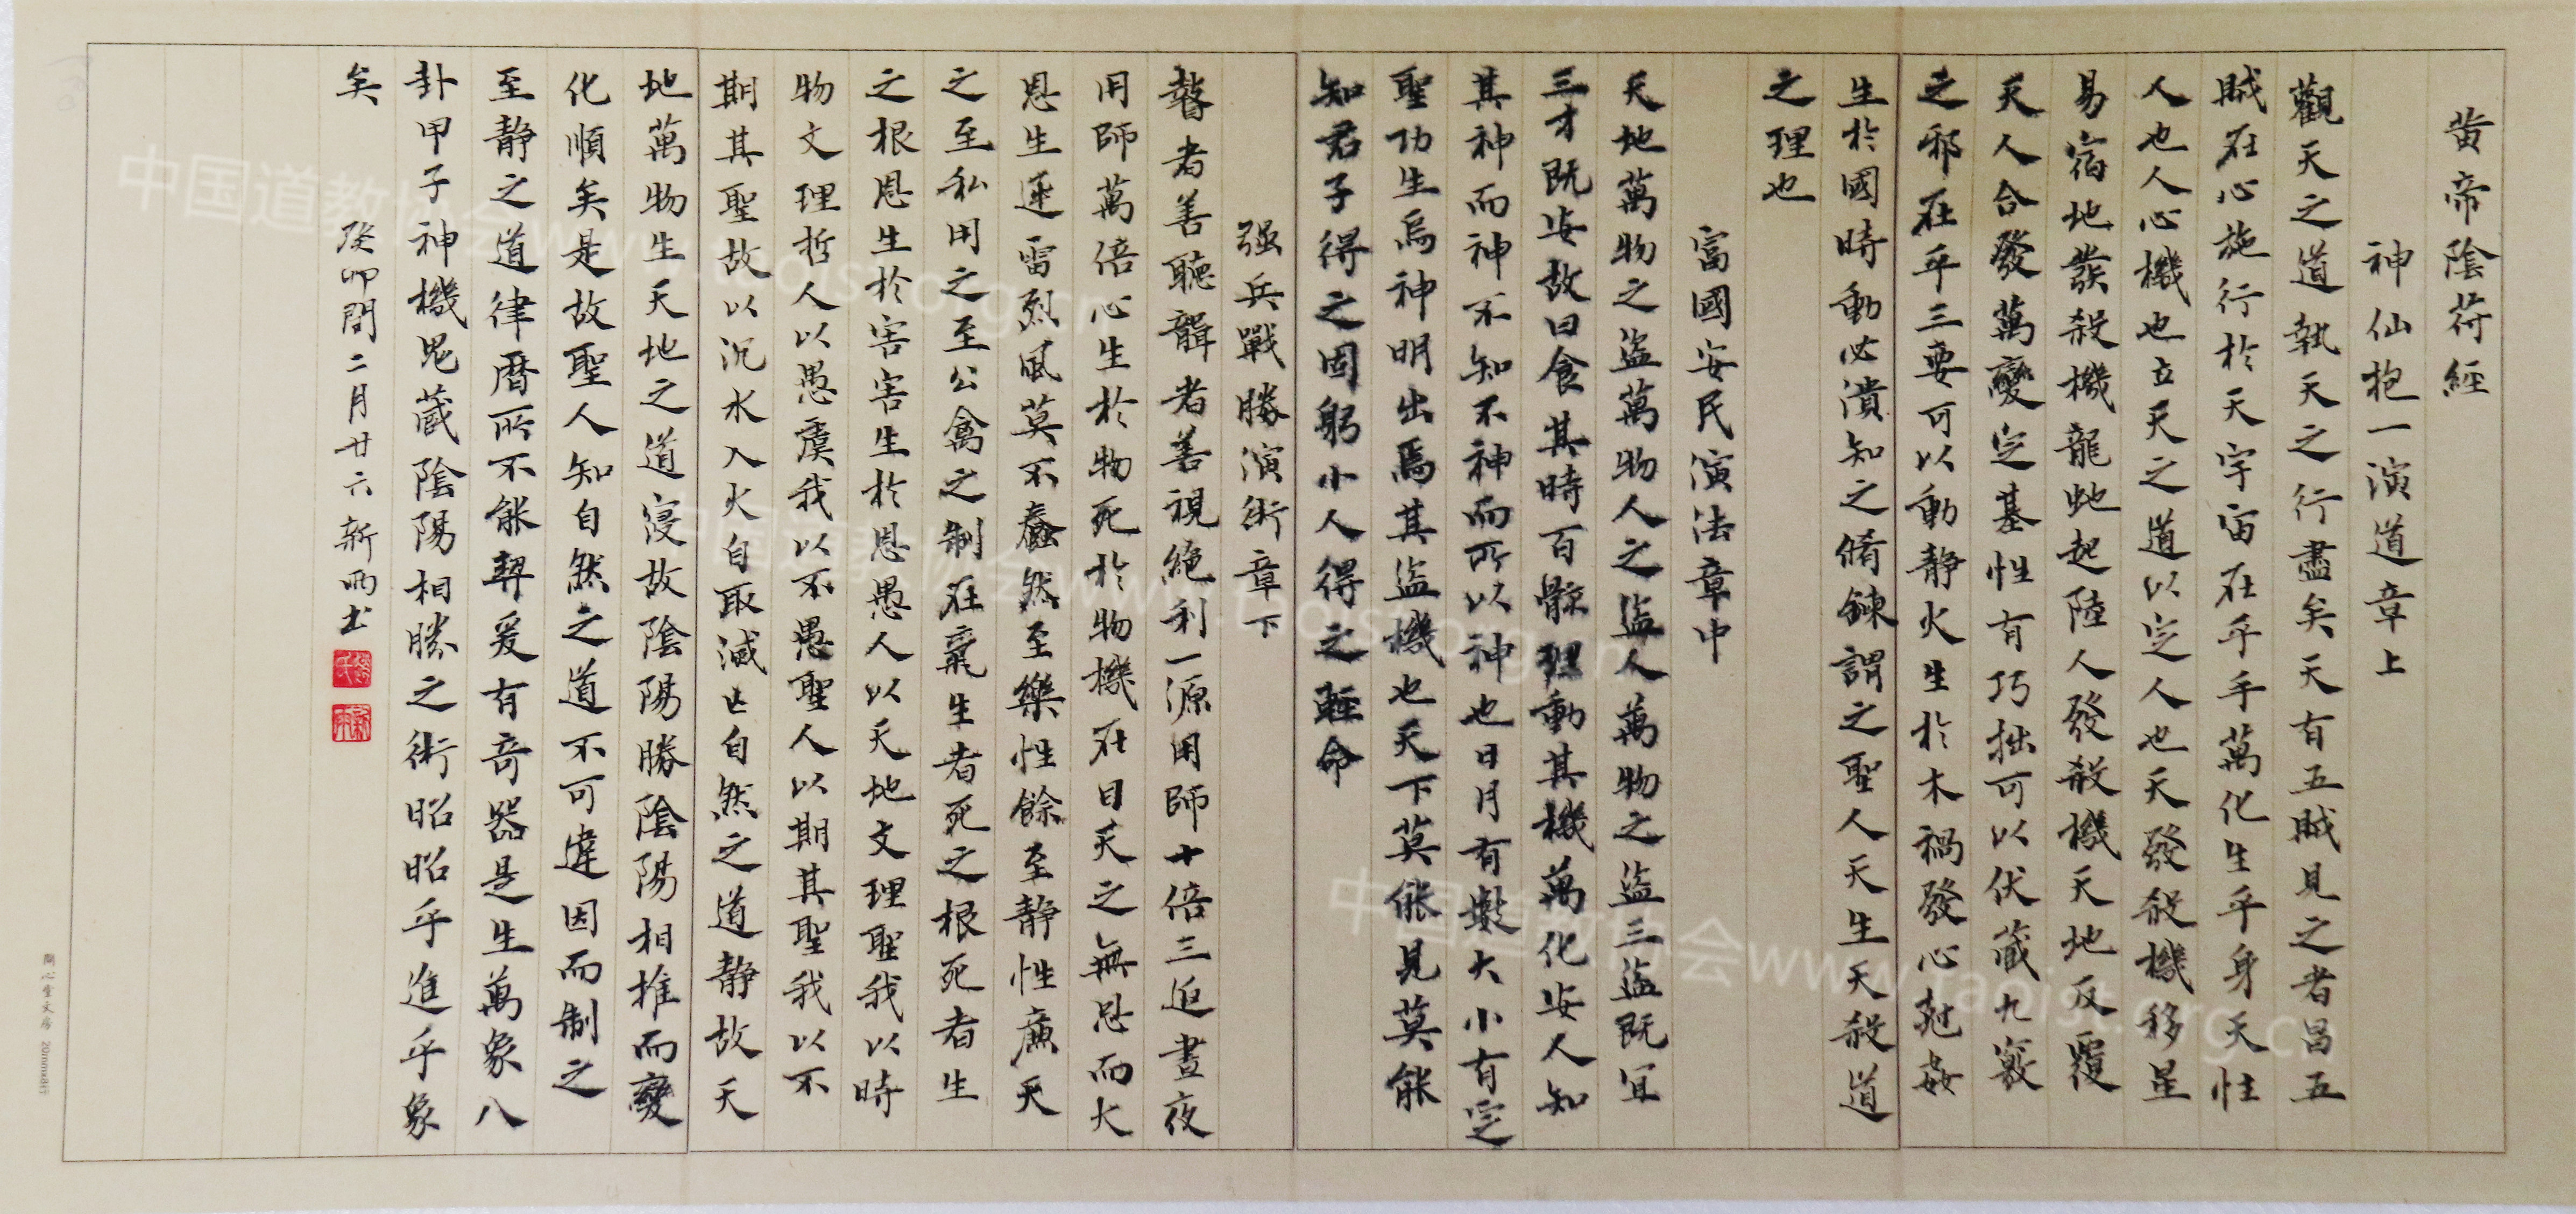 黄帝陰符經
神仙抱一演道章上
觀天之道執天之行盡矣天有五賊見之者昌五
賊在心施行於天宇宙在乎手萬化生乎身天性
人也人心機也立天之道以定人也天發殺機移星
易宿地發殺機龍蛇起陸人發殺機天地反覆
天人合發萬變定基性有巧拙可以伏藏九竅
之邪在乎三要可以動静火生於木禍發心尅姦
生於國時動必潰知之脩鍊謂之聖人天生天殺道
之理也
富國安民演法章中
天地萬物之盗萬物人之盗人萬物之盗三盗既宜
三才既安故曰食其時百骸理動其機萬化安人知
其神而神不知不神而所以神也日月有數大小有定
聖功生焉神明出焉其盗機也天下莫能見莫能
知君子得之固躬小人得之輕命
强兵戰勝演術章下
瞽者善聽聾者善視絕利一源用師十倍三返晝夜
用師萬倍心生於物死於物機在目天之無恩而大
恩生迅雷烈風莫不蠢然至樂性餘至静性廉天
之至私用之至公禽之制在氣生者死之根死者生
之根恩生於害害生於恩愚人以天地文理聖我以時
物文理哲人以愚虞我以不愚聖人以期其聖我以不
期其聖故以沉水入火自取滅亡自然之道静故天
地萬物生天地之道寖故陰陽勝陰陽相推而變
化順矣是故聖人知自然之道不可違因而制之
至静之道律曆所不能契爰有奇器是生萬象八
卦甲子神機鬼藏陰陽相勝之術昭昭乎進乎象
矣
癸卯閏二月廿六新雨书
中国道教协会www.taoist.org.cn
中国道教协会www.taoist.org.cn
中国道教协会www.taoist.org.cn